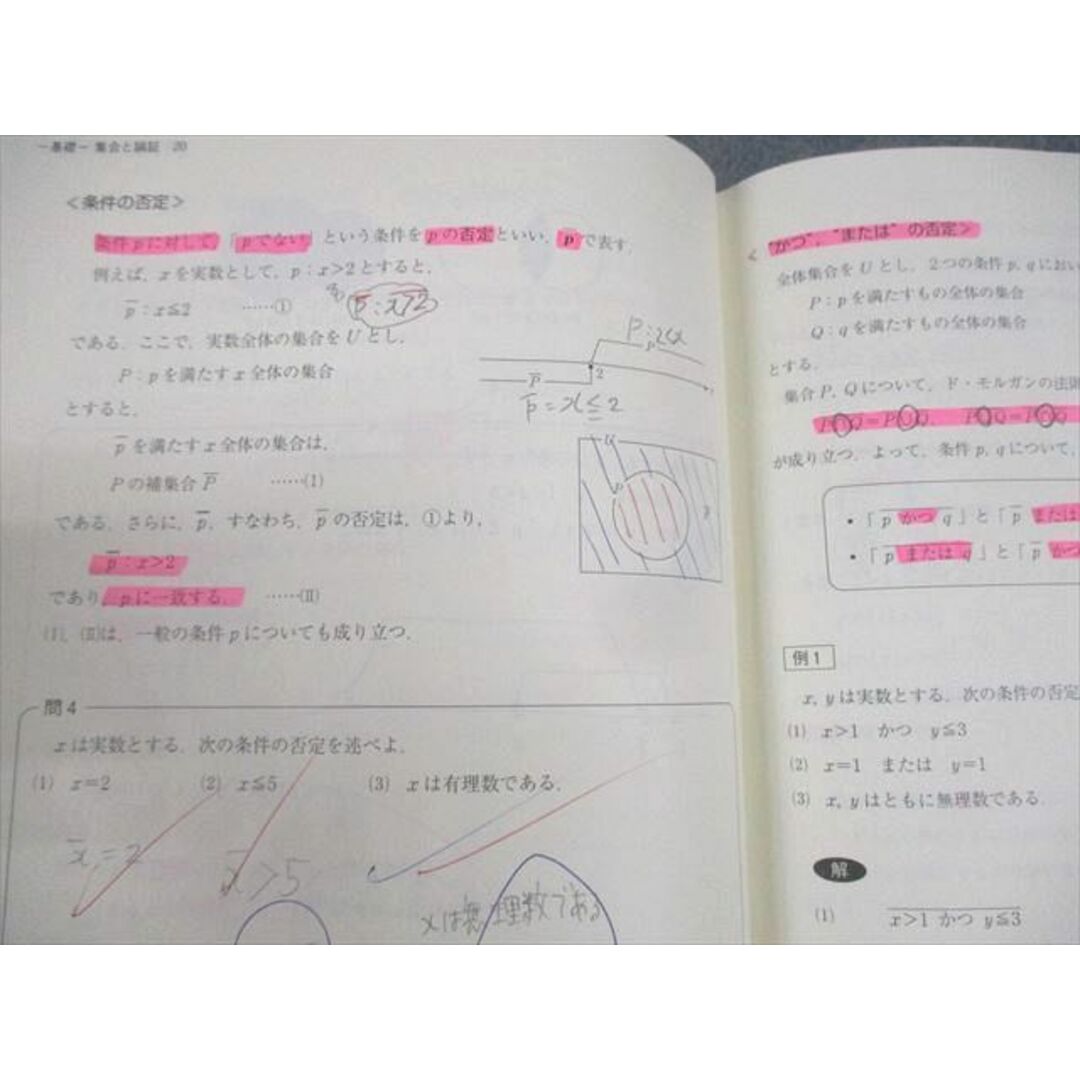 －基礎－ 集合と論証 20
＜条件の否定＞
条件 p に対して,「p でない」という条件を p の否定といい, p̄ で表す.
例えば, x を実数として, p : x>2 とすると,
p̄ : x≦2 ……①
p̄ : x>2
である. ここで, 実数全体の集合を U とし,
P : p を満たす x 全体の集合
P : 2<x
2
p̄
p̄ = x≦2
とすると,
p̄ を満たす x 全体の集合は,
P の補集合 P̄ ……(Ⅰ)
である. さらに, p̄, すなわち, p̄ の否定は, ①より,
p̄ : x>2
であり, p に一致する. ……(Ⅱ)
(Ⅰ), (Ⅱ)は, 一般の条件 p についても成り立つ.
問4
x は実数とする. 次の条件の否定を述べよ.
(1) x=2 (2) x≦5 (3) x は有理数である.
x>5
xは無理数である
＜"かつ", "または" の否定＞
全体集合を U とし, 2つの条件 p, q におい
P : p を満たすもの全体の集合
Q : q を満たすもの全体の集合
とする.
集合 P, Q について, ド・モルガンの法則
が成り立つ. よって, 条件 p, q について,
・「p かつ q」と「p̄ または
・「p または q」と「p̄ かつ
例1
x, y は実数とする. 次の条件の否定
(1) x>1 かつ y≦3
(2) x=1 または y=1
(3) x, y はともに無理数である.
解
(1) x>1 かつ y≦3